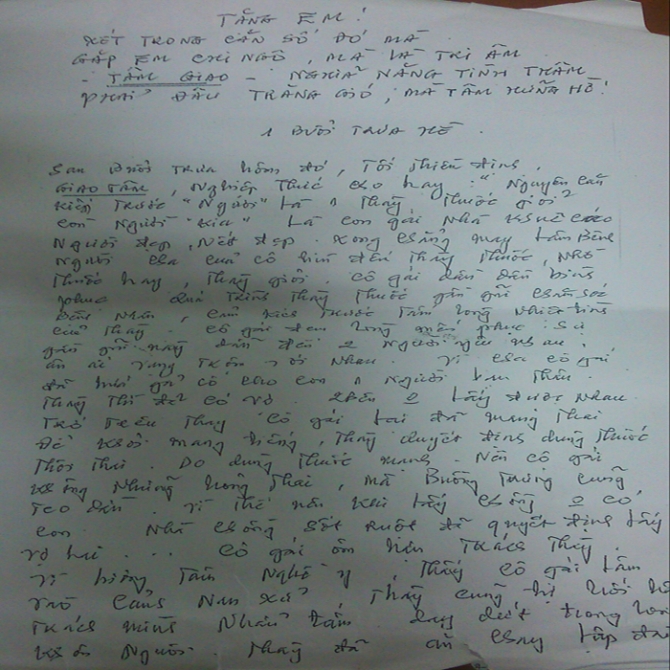 TẶNG EM!
XÉT TRONG CĂN SỐ ĐÓ MÀ
GẶP EM CHI NGỘ, MÀ LÀ TRI ÂM
- TÂM GIAO - NGHĨA NẶNG TÌNH THÂM
PHẢI ĐÂU TRĂNG GIÓ, MÀ TẦM HỒ!
1 BUỔI TRƯA HÈ.
Sau buổi trưa hôm đó, Tôi thiền định.
GIAO TÂM, Nghiệp Thức cho hay: "Nguyên căn
kiếp trước "Người" là 1 Thầy Thuốc giỏi
còn Người "kia" là con gái Nhà
Người đẹp, Nết đẹp. Xong chẳng may lâm Bệnh
Người cha của cô đến Thầy Thuốc, Nhờ
Thuốc hay, Thầy giỏi. Cô gái dần dần bình
phục. quá trình Thầy Thuốc gần gũi chăm sóc
Bệnh Nhân, cảm Tấm lòng nhiệt tình
của Thầy. Cô gái đem lòng mến phục. Sự
gần gũi này dẫn đến 2 Người yêu nhau.
ân ái vụng Trộm với Nhau. Vì cha cô gái
đã hứa gả cô cho con 1 Người bạn Thân.
Thầy Thì đã có vợ. 2 lấy được Nhau.
Trớ Trêu Thay cô gái lại đã mang Thai
Để khỏi mang tiếng, Thầy quyết định dùng Thuốc
Thôi Thai. Do dùng Thuốc mạnh. Nên cô gái
không Những hỏng Thai, mà Buồng Trứng cũng
Teo dần. Vì Thế nên khi lấy chồng có
con. Nhà chồng sốt ruột đã quyết định lấy
vợ hai... Cô gái ôm hận Trách Thầy
vì không Tâm Nghề y. Thấy cô gái lâm
vào cảnh Thầy cũng hối
Trách mình Nhẫn tâm. day dứt trong
Người. Thầy đã ăn chay